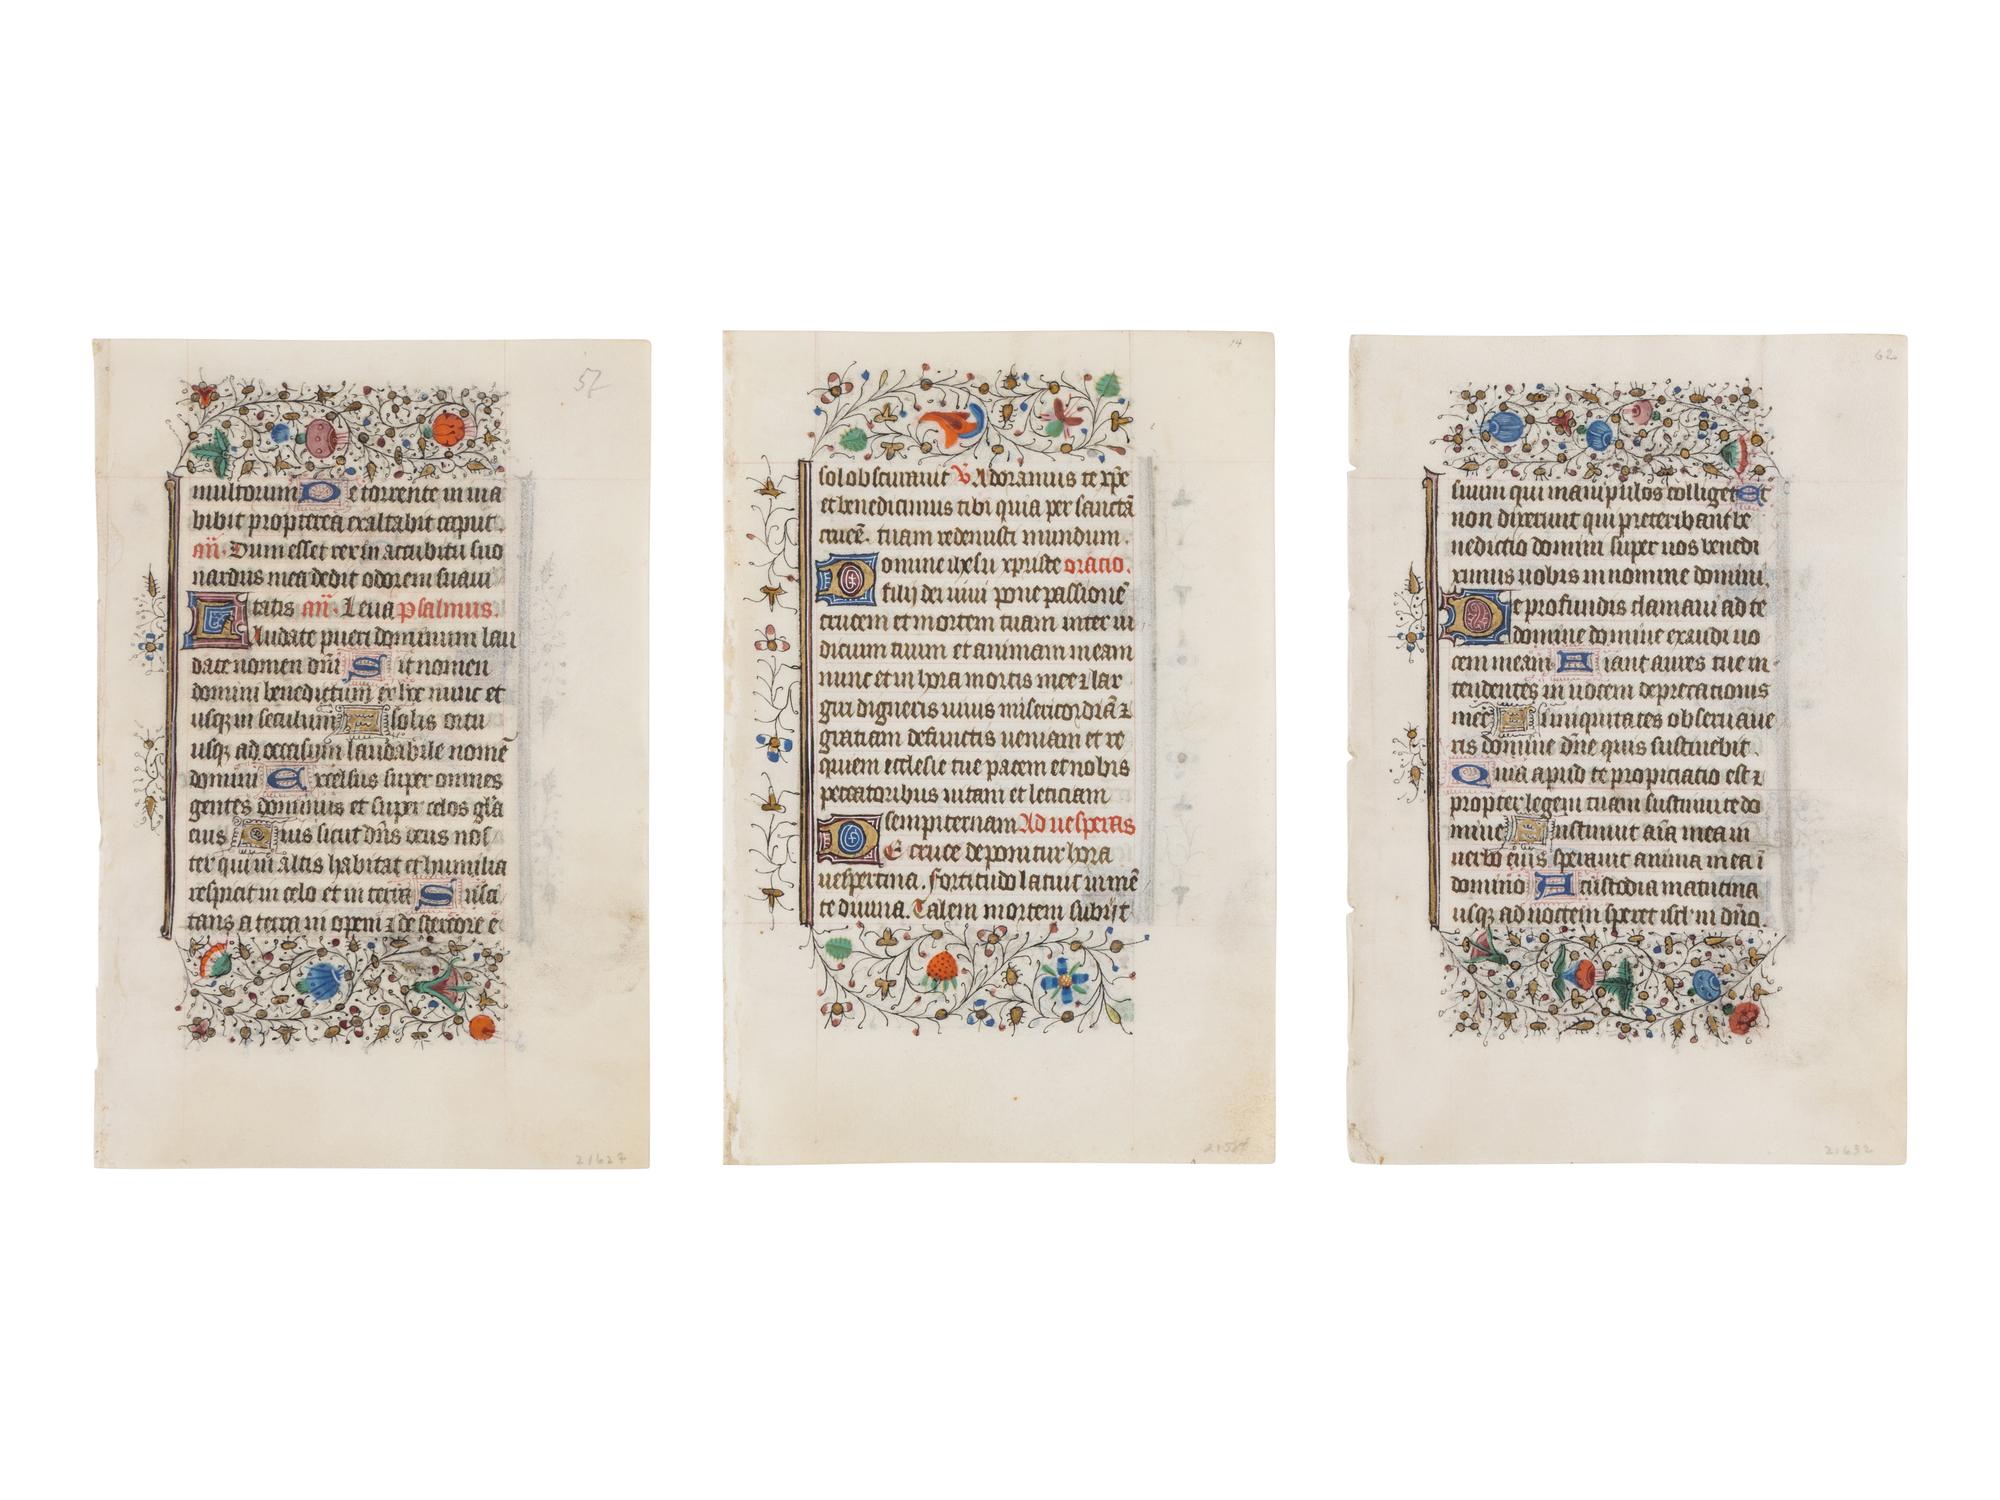 57
multorum De torrente in uia
bibit propterea exaltabit caput.
añ. Dum esset rex in accubitu suo
nardus mea dedit odorem suaui
tatis añ. Leua psalmus.
Laudate pueri dominum lau
date nomen dñi Sit nomen
domini benedictum ex hoc nunc et
usqꝫ in seculum A solis ortu
usqꝫ ad occasum laudabile nomē
domini Excelsus super omnes
gentes dominus et super celos gl̄a
eius Quis sicut dñs deus nos
ter qui in altis habitat et humilia
respicit in celo et in terra Susci
tans a terra inopem ꝛ de stercore e
21627
14
sol obscurauit ℣. Adoramus te xp̄e
et benedicimus tibi quia per sanctā
crucē. tuam redemisti mundum.
Domine ihesu xpriste oratio.
fili dei uiui pone passionē
crucem et mortem tuam inter iu
dicium tuum et animam meam
nunc et in hora mortis mee ꝛ lar
giri digneris uiuis misericordiā ꝛ
gratiam defunctis ueniam et re
quiem ecclesie tue pacem et nobis
peccatoribus uitam et leticiam
sempiternam Ad uesperas
De cruce deponitur hora
uespertina. fortitudo latuit in mē
te diuina. Talem mortem subijt
62
suum qui manipulos colliget Et
non dixerunt qui preteribant be
nedictio domini super uos benedi
ximus uobis in nomine domini.
De profundis clamaui ad te
domine domine exaudi uo
cem meam Fiant aures tue in
tendentes in uocem deprecationis
mee Si iniquitates obseruaue
ris domine dñe quis sustinebit.
Quia apud te propiciatio est ꝛ
propter legem tuam sustinui te do
mine Sustinuit aīa mea in
uerbo eius sperauit anima mea ī
domino A custodia matutina
usqꝫ ad noctem speret isrl̄ in dño.
21632